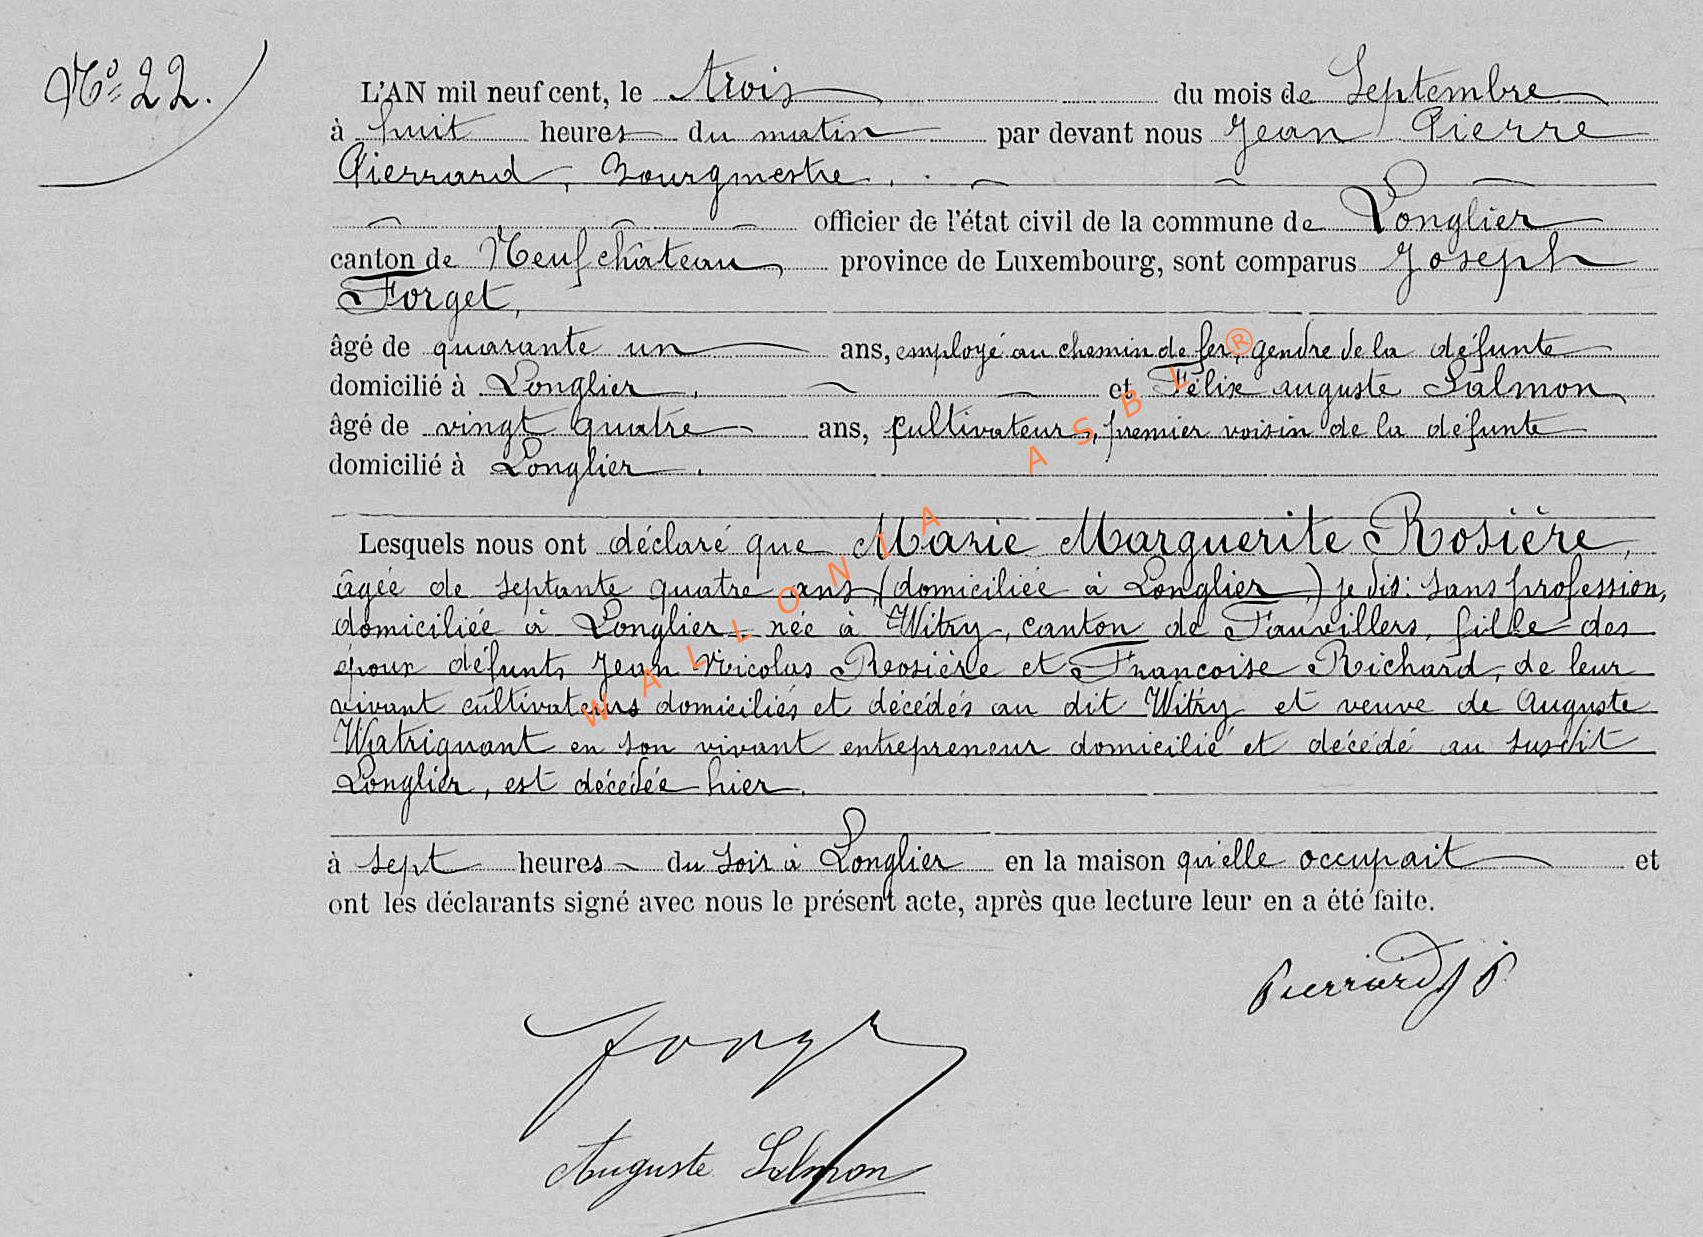 No= 22.
L'AN mil neuf cent, le trois du mois de Septembre
à huit heures du matin par devant nous Jean Pierre
Pierrard, Bourgmestre.
officier de l'état civil de la commune de Longlier
canton de Neufchâteau, province de Luxembourg, sont comparus Joseph
Forget,
âgé de quarante un ans, employé au chemin de fer, gendre de la défunte
domicilié à Longlier, et Félix auguste Salmon,
âgé de vingt quatre ans, cultivateurs, premier voisin de la défunte
domicilié à Longlier.
Lesquels nous ont déclaré que Marie Marguerite Rosière,
âgée de septante quatre ans, (domiciliée à Longlier,) je dis: sans profession,
domiciliée à Longlier née à Witry, canton de Fauvillers, fille des
époux défunts Jean Nicolas Rosière et Françoise Richard, de leur
vivant cultivateurs domiciliés et décédés au dit Witry et veuve de Auguste
Watriquant en son vivant entrepreneur domicilié et décédé au susdit
Longlier, est décédée hier.
à sept heures du soir à Longlier en la maison qu'elle occupait et
ont les déclarants signé avec nous le présent acte, après que lecture leur en a été faite.
Pierrard J P
Forget
Auguste Salmon
WALLONIA ASBL ®